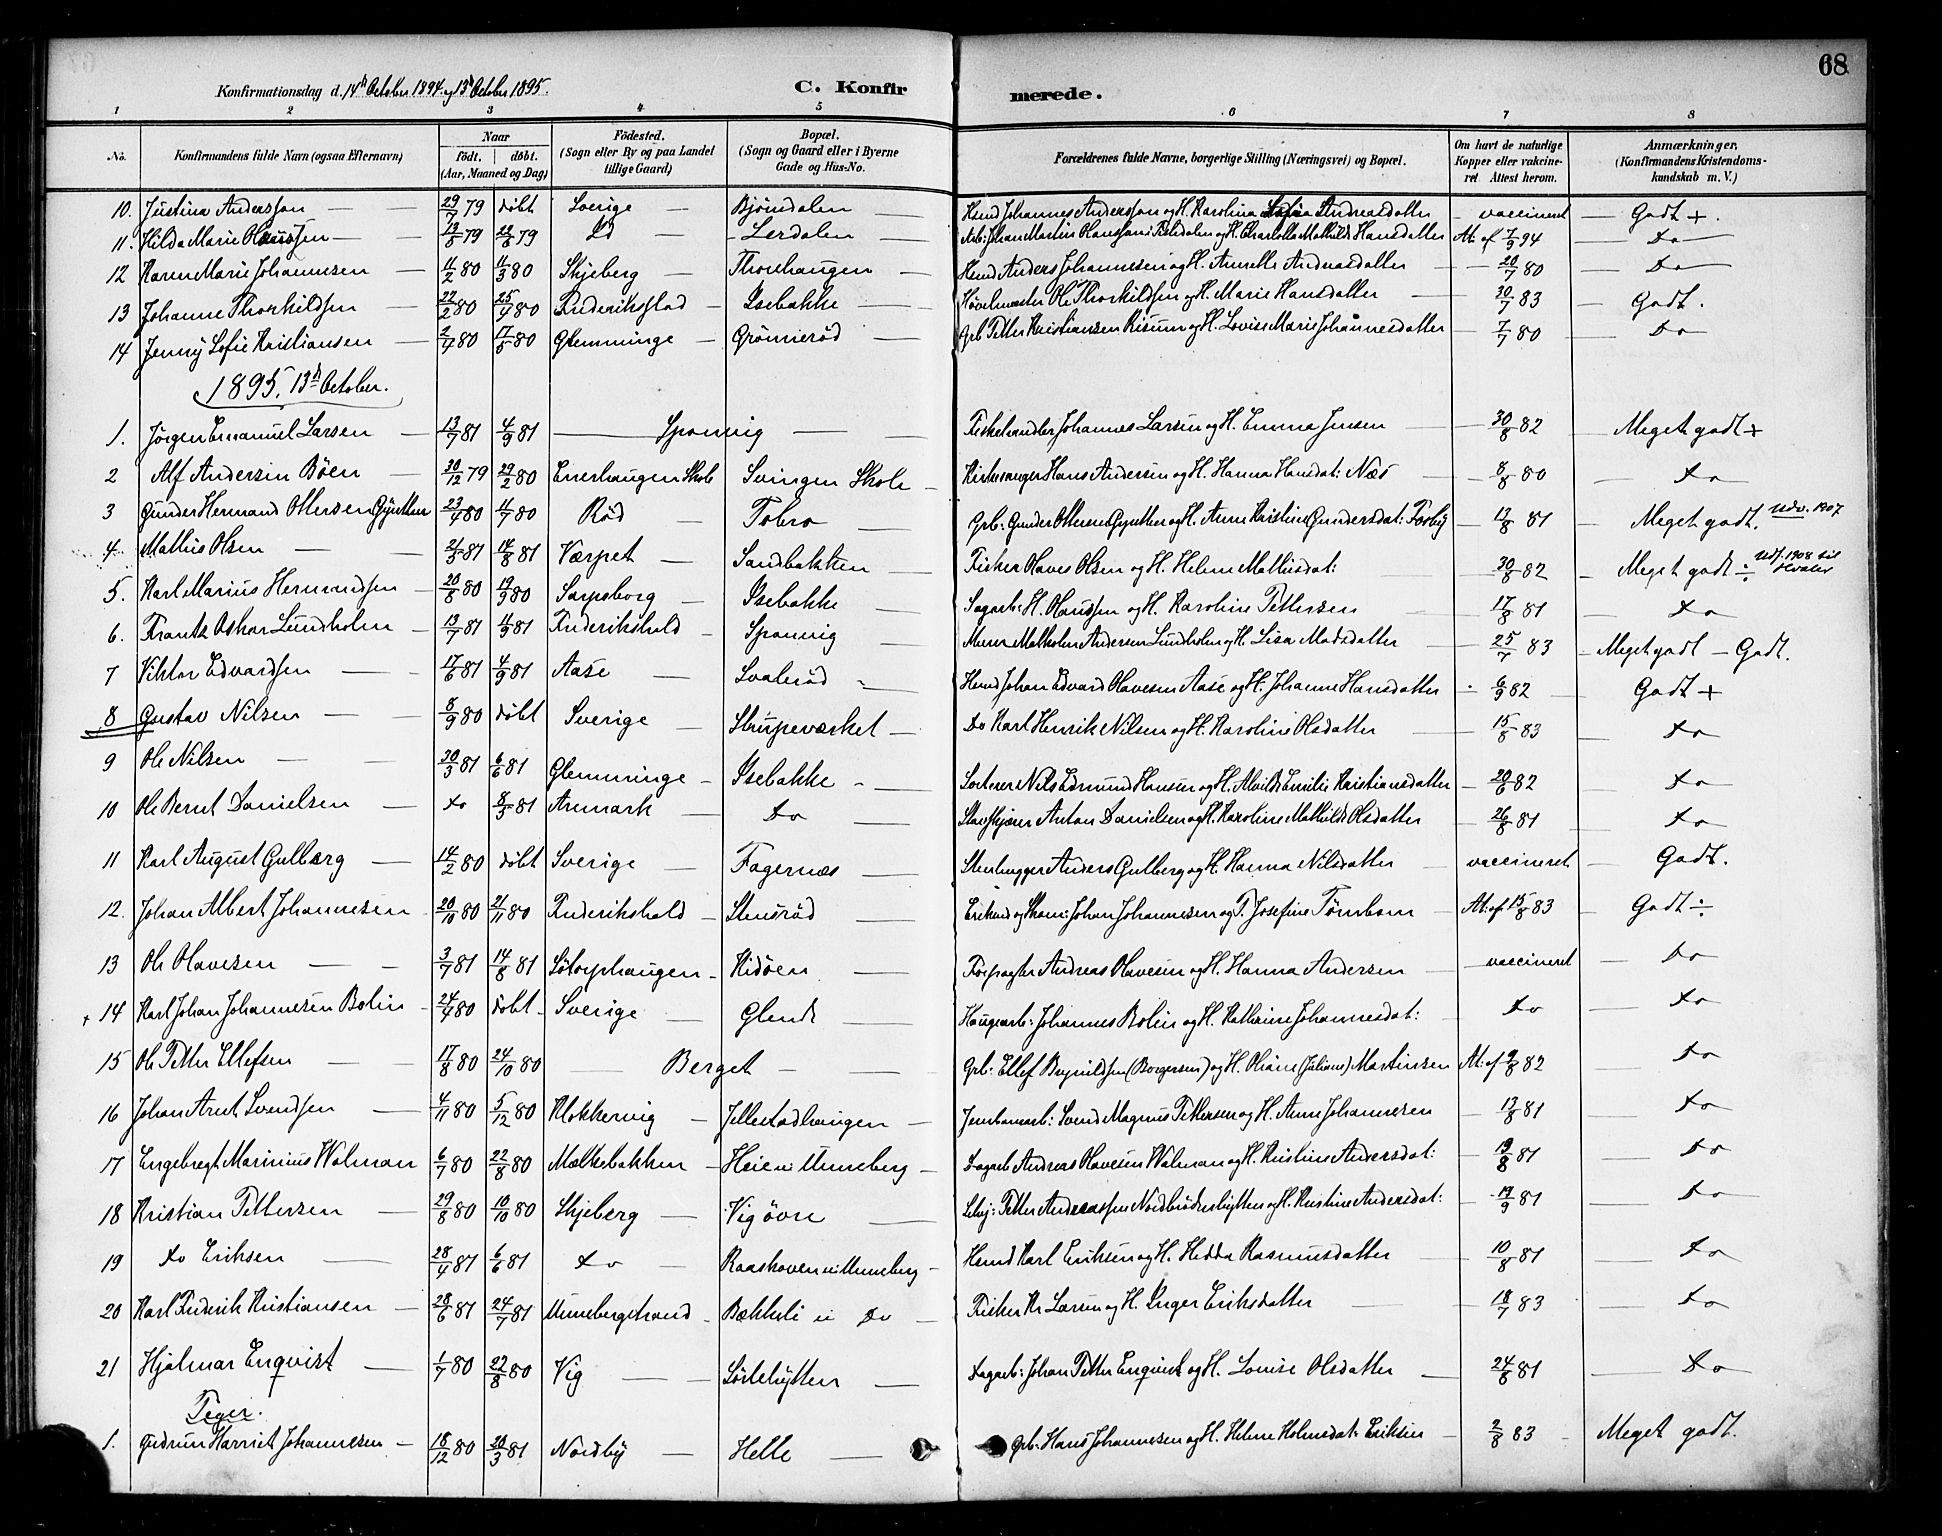 68
Konfirmationsdag d. 14de October 1894 og 13de October 1895.
C. Konfirmerede.
1 2 3 4 5 6 7 8
No. Konfirmandens fulde Navn (ogsaa Efternavn) Naar födt. döbt. (Aar, Maaned og Dag) Födested. (Sogn eller By og paa Landet tillige Gaard) Bopæl. (Sogn og Gaard eller i Byerne Gade og Hus-No. Forældrenes fulde Navne, borgerlige Stilling (Næringsvei) og Bopæl. Om havt de naturlige Kopper eller vakcineret Attest herom. Anmærkninger, (Konfirmandens Kristendomskundskab m. V.)
10. Justina Andersson 29/7 79 döbt Sverige Björndalen Husmd Johannes Andersson og H. Karolina Sofia Andreasdatter vaccineret Godt +.
11. Hilda Marie 79 79 Id Lerdalen Arb: Johan Martin og H. Charlotte Mathilde Hansdatter At: af 7/9 94 Do
12 Karen Marie Johannesen 11/2 80 11/3 80 Skjeberg Thorehaugen Husmd Anders Johannesen og H. Annette Andreasdatter 20/7 80 Do
13 Johanne Thorkildsen 22/2 80 25/4 80 Frederikstad Isebakke Hövelmester Ole Thorkildsen og H. Marie Hansdatter 30/7 83 Godt.
14 Jenny Sofie Kristiansen 2/4 80 17/5 80 Glemminge Grönneröd Grb Petter Kristiansen Risum og H. Lovise Marie Johannesdatter 7/7 80 Do
1895, 13de October.
1. Jörgen Emanuel Larsen 13/7 81 4/9 81 Sponvig Fiskehandler Johannes Larsen og H. Emma Jensen 30/8 82 Meget godt +
2 Alf Andersen Böen 30/12 79 29/2 80 Enerhaugen Skole Svingen Skole Kirkesanger Hans Andersen og H. Hanna Hansdat: Næs 8/8 80 Do
3 Gunder Hermand Ottersen Gynther 23/4 80 11/7 80 Röd Tobro Grb: Gunder Ottersen Gynther og H. Anne Kristine Gundersdat: Torby 13/8 81 Meget godt. Udv. 1907
4 Mathis Olsen 2/5 81 14/8 81 Værpet Sandbakken Fisker Olaves Olsen og H. Helene Mathisdat: 30/8 82 Meget godt ÷ Udf. 1908 til Hvaler
5. Karl Marius Hermundsen 20/8 80 19/9 80 Sarpsborg Isebakke Sagarb: H. Olaussen og H. Karoline Pettersen 17/8 81 Do
6. Frantz Oskar Lundholm 13/7 81 11/9 81 Frederikshald Sponvig Murer Malkolm Andersen Lundholm og H. Lisa Madsdatter 25/7 83 Meget godt – Godt.
7 Viktor Edvardsen 17/6 81 4/9 81 Aase Svaleröd Husmd Johan Edvard Olavesen Aase og H. Johanne Hansdatter 6/9 82 Godt +
8 Gustav Nilsen 8/9 80 döbt Sverige Strupeværket Do Karl Henrik Nilsen og H. Karoline Olsdatter 15/8 83 Do
9 Ole Nilsen 30/3 81 6/6 81 Glemminge Isebakke Sorterer Nils Edmund Hansen og H. Alvilde Emilie Kristiansdatter 20/6 82 Do
10 Ole Bernt Danielsen Do 8/5 81 Aremark Do Stavskjærer Anton Danielsen og H. Karoline Mathilde Olsdatter 26/8 81 Do
11 Karl August Gulberg 14/2 80 döbt Sverige Fagernæs Stenhugger Anders Gulberg og H. Hanna Nilsdatter vaccineret Godt.
12. Johan Albert Johannesen 20/10 80 21/11 80 Frederikshald Stensröd Johan Johannesen og P. Josefine Törnbom At: af 15/8 83 Godt ÷
13 Ole Olavesen 3/7 81 14/8 81 Lötorphaugen Kidöen Forpagter Andreas Olavesen og H. Hanna Andersen vaccineret Do
+ 14 Karl Johan Johannesen Bolin 24/4 80 döbt Sverige Glende Haugearb: Johannes Bolin og H. Kathrine Johannesdat: Do Do
15 Ole Petter Ellefsen 17/8 80 24/10 80 Berget Grb: Ellef (Borgersen) og H. Oliane (Juliane) Martinsen At: af 9/8 82 Do
16 Johan Arnt Svendsen 4/11 80 5/12 80 Klokkervig Jellestadhaugen Jernbanearb: Svend Magnus Pettersen og H. Anne Johannesen 13/8 81 Do
17 Engebregt Marinius Walman 6/7 80 22/8 80 Mælkebakken Heie u: Unneberg Dagarb Andreas Olavesen Walman og H. Kristine Andersdat: 19/8 81 Do
18 Kristian Pettersen 29/8 80 10/10 80 Skjeberg Vig övre Selvej: Petter Andreassen Nordbrödenhytten og H. Kristine Andersdat: 19/9 81 Do
19 Do Eriksen 28/4 81 6/6 81 Do Raaskoven u: Unneberg Husmd Karl Eriksen og H. Hedda Rasmusdatter 10/8 81 Do
20 Karl Frederik Kristiansen 28/6 81 24/7 81 Unnebergstrand Bækkeli u Do Fisker Kr. Larsen og H. Inger Eriksdatter 18/7 83 Do
21 Hjalmar Enqvist 1/7 80 22/8 80 Vig Löslehytten Dagarb: Johan Petter Enqvist og H. Lovise Olsdatter 24/8 81 Do
Piger.
1. Gudrun Harriet Johannesen 18/12 80 20/3 81 Nordby Helle Grb: Hans Johannesen og H. Helene Holmsdat: Eriksen 2/8 83 Meget godt.